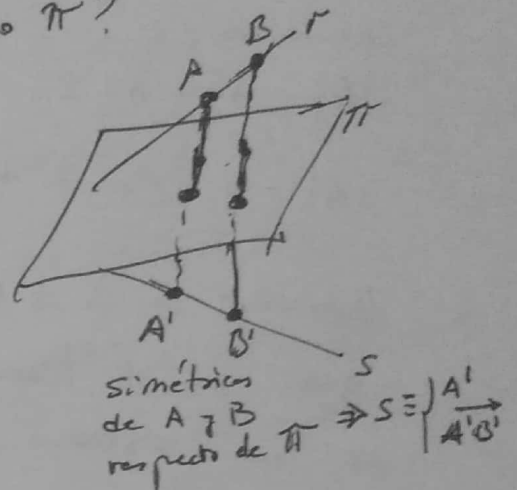 o π?
B r
A
π
A'
B'
s
simétricos
de A y B
respecto de π ⇒ S ≡ { A'
A'B'